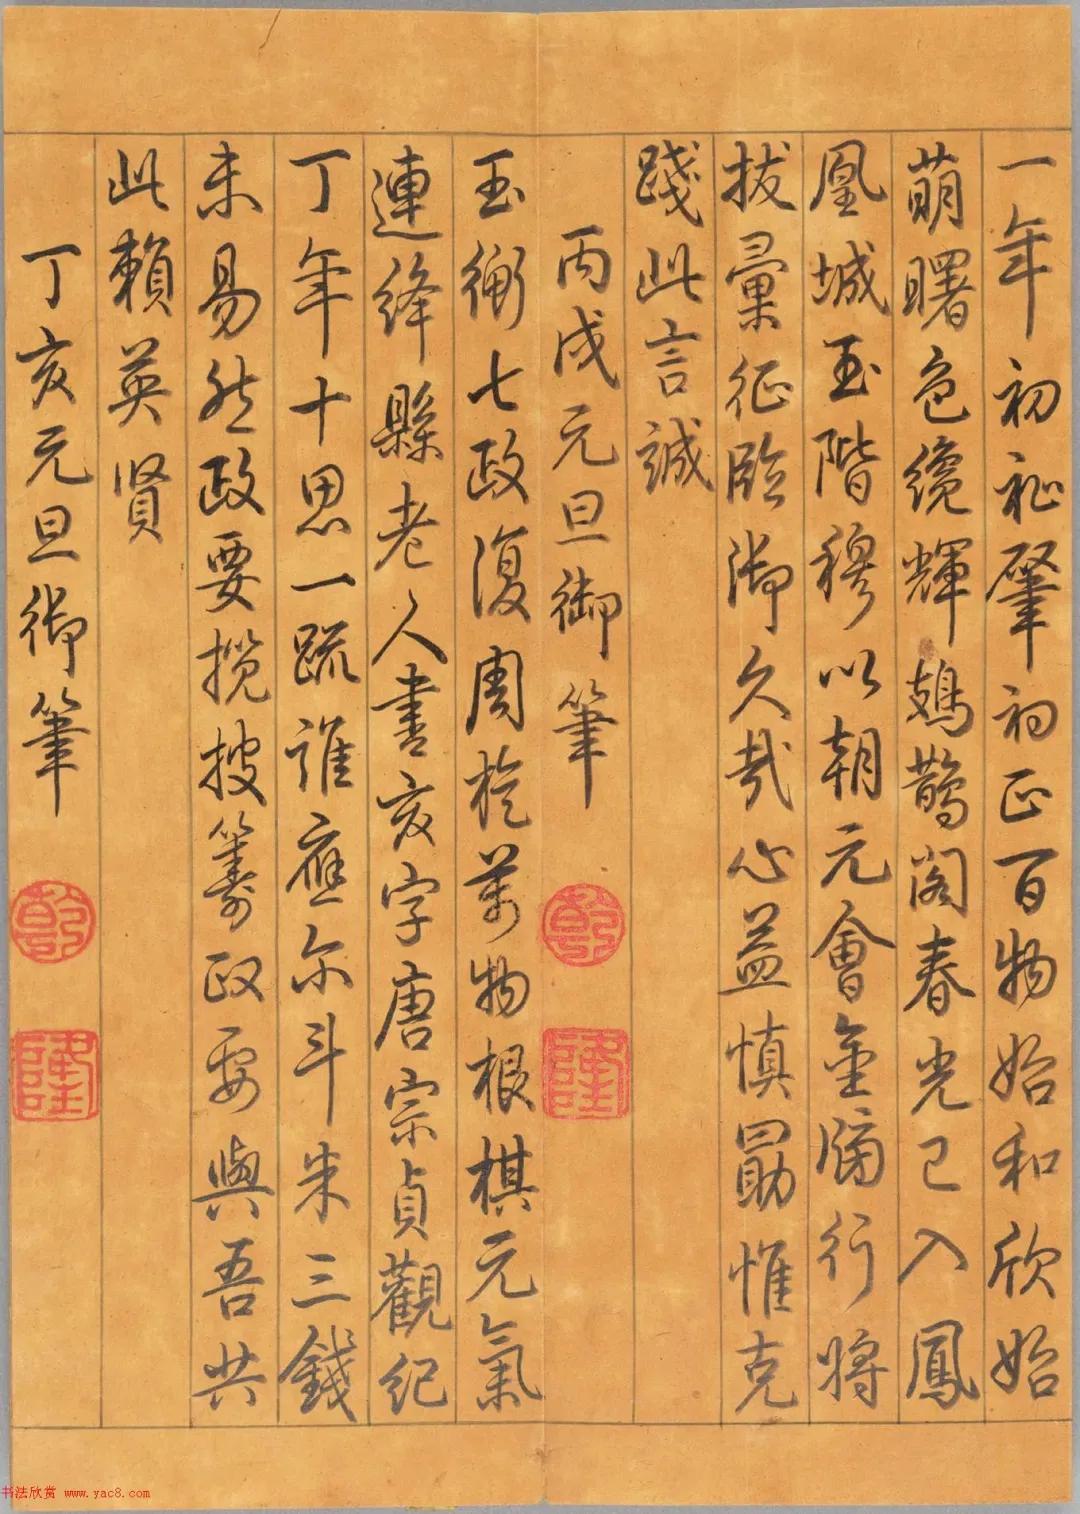 一年初祉肇初正百物始和欣始
萌曙色纔輝鳷鵲閣春光已入鳳
凰城玉階穆以朝元會金牖行將
拔彙征臨御久哉心益慎勖惟克
踐此言誠
丙戌元旦御筆
乾
隆
玉衡七政復周旋萬物根棋元氣
連絳縣老人書亥字唐宗貞觀紀
丁年十思一疏誰應尔斗米三錢
未易然政要攬披籌政要與吾共
此賴英賢
丁亥元旦御筆
乾
隆
书法欣赏 www.yac8.com